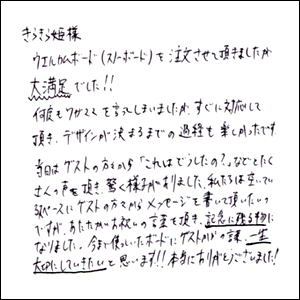 きらきら姫様
ウエルカムボード(スノーボード)を注文させて頂きましたが
大満足でした!!
何度もワガママを言ってしまいましたが、すぐに対応して
頂き、デザインが決まるまでの過程も楽しかったです
当日はゲストの方々から「これはどうしたの?」などとたく
さんの声を頂き、驚く様子がありました。私たちは空いている
スペースにゲストの方々からメッセージを書いて頂いたの
ですが、あたたかいお祝いの言葉を頂き、記念に残る物に
なりました。今まで使っていたボードにゲストからの言葉、一生
大切にしていきたいと思います!!本当にありがとうございました!